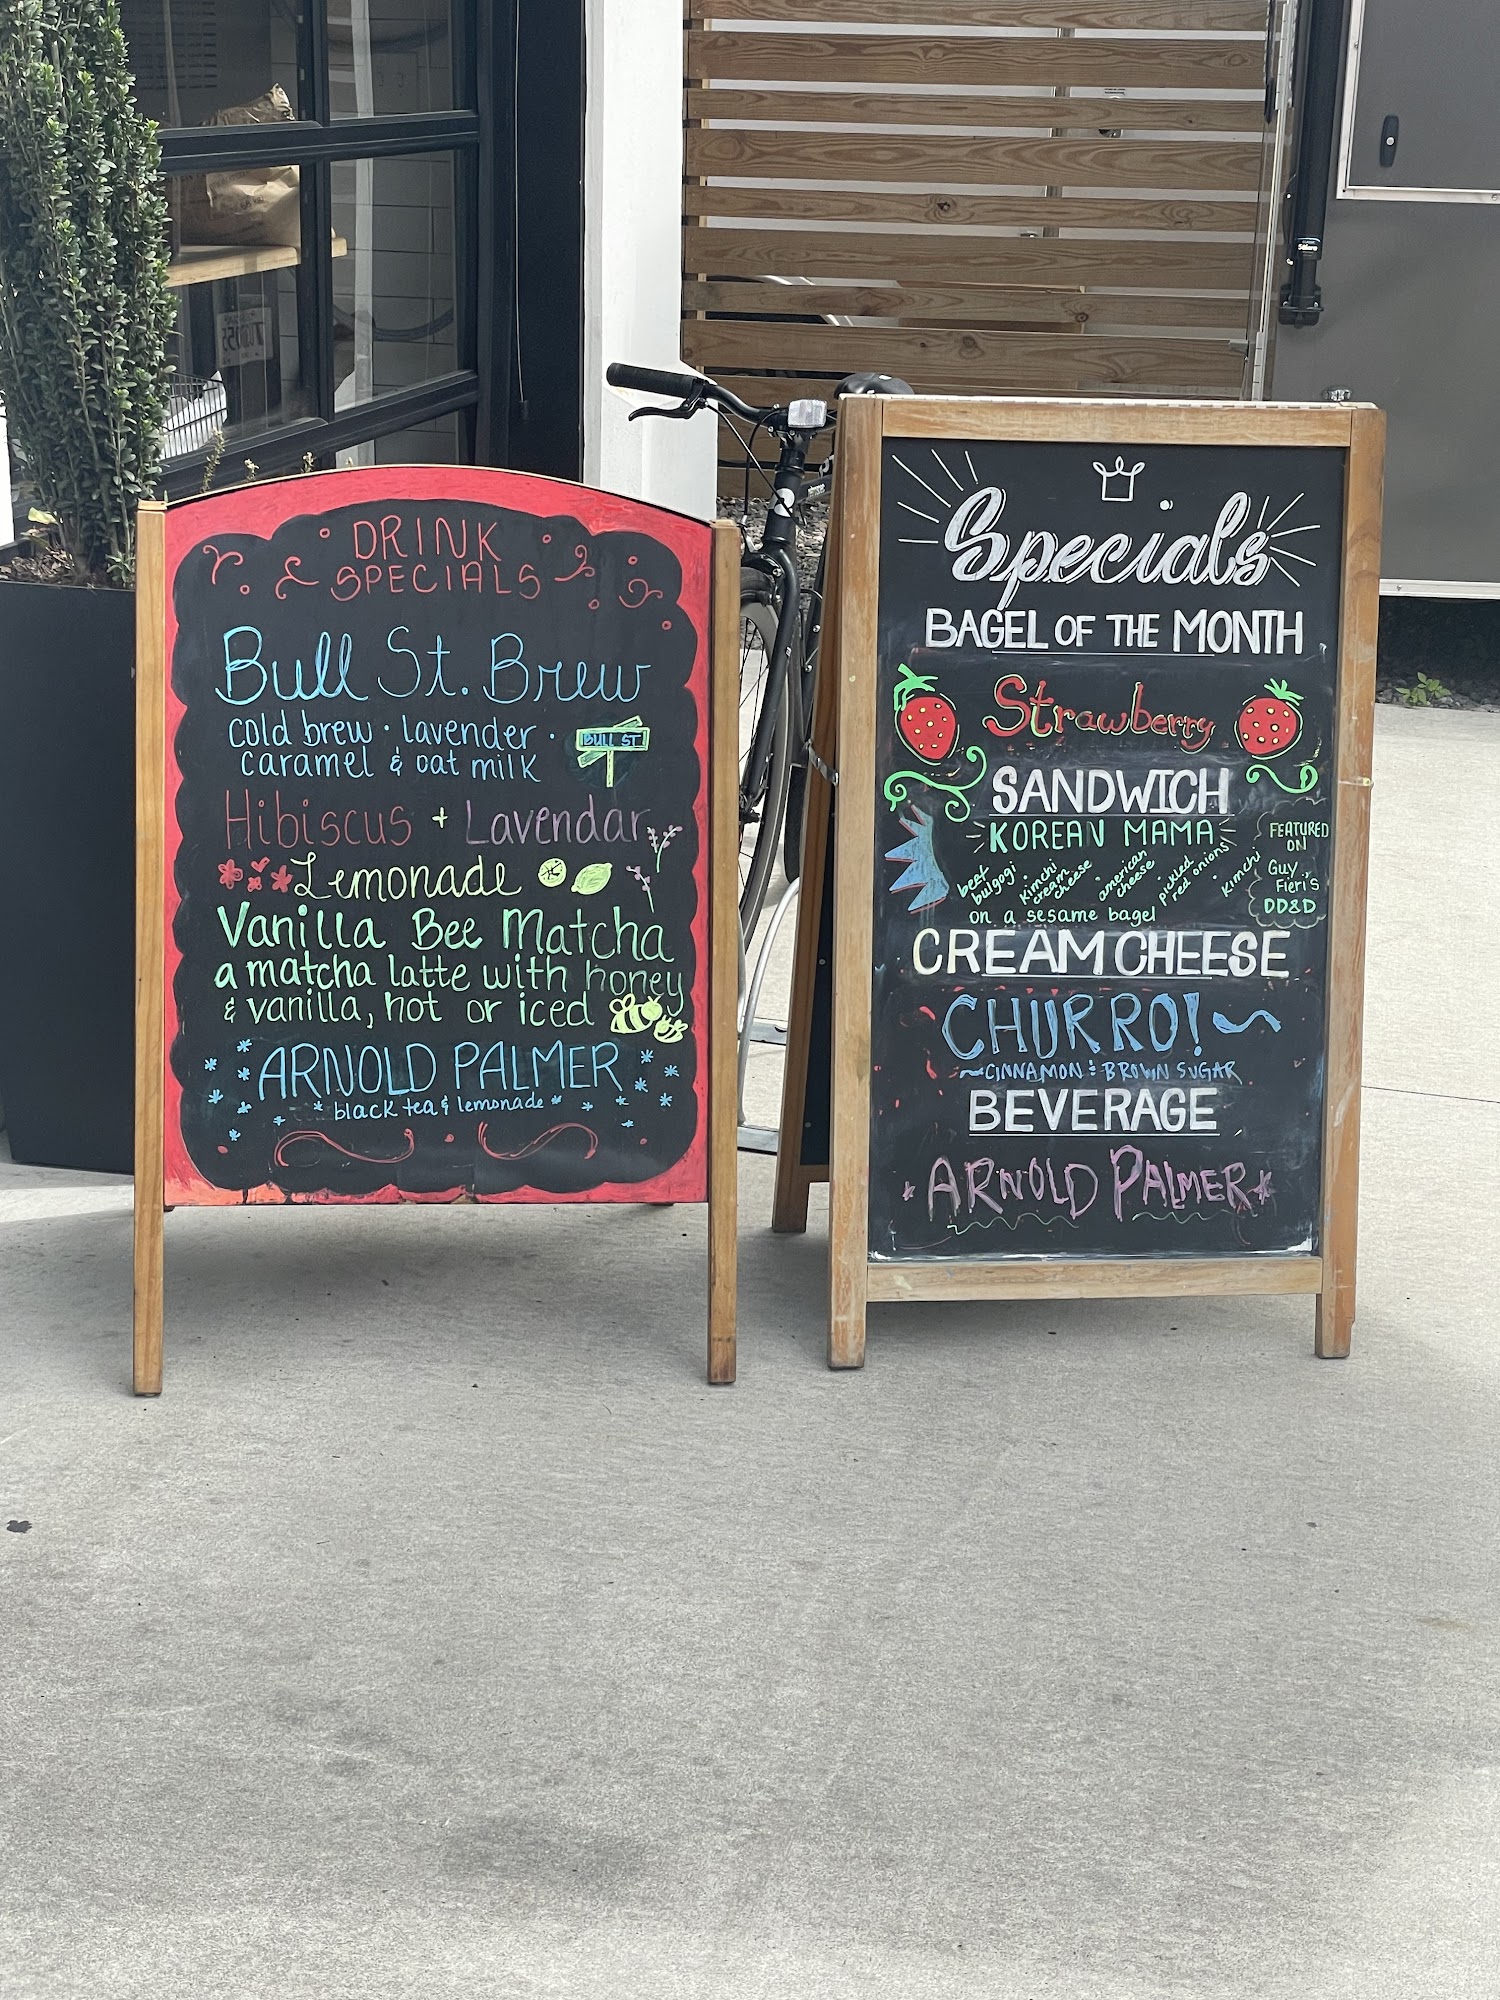 DRINK
SPECIALS
Bull St. Brew
cold brew · lavender ·
caramel & oat milk
BULL ST
Hibiscus + Lavendar
Lemonade
Vanilla Bee Matcha
a matcha latte with honey
& vanilla, hot or iced
ARNOLD PALMER
black tea & lemonade
Specials
BAGEL OF THE MONTH
Strawberry
SANDWICH
KOREAN MAMA
beef bulgogi · kimchi cream cheese · american cheese · pickled red onions · kimchi
on a sesame bagel
FEATURED
ON
Guy
Fieri's
DD&D
CREAM CHEESE
CHURRO!
~CINNAMON & BROWN SUGAR
BEVERAGE
ARNOLD PALMER